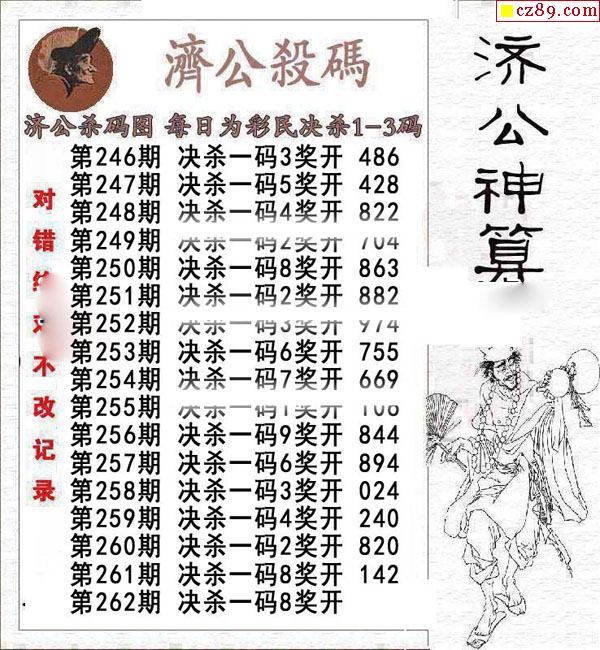 cz89.com
濟公殺碼
济公杀码图 每日为彩民决杀1-3码
第246期 决杀一码3奖开 486
第247期 决杀一码5奖开 428
第248期 决杀一码4奖开 822
第249期 决杀一码2奖开 704
第250期 决杀一码8奖开 863
第251期 决杀一码2奖开 882
第252期 决杀一码3奖开 974
第253期 决杀一码6奖开 755
第254期 决杀一码7奖开 669
第255期 决杀一码1奖开 108
第256期 决杀一码9奖开 844
第257期 决杀一码6奖开 894
第258期 决杀一码3奖开 024
第259期 决杀一码4奖开 240
第260期 决杀一码2奖开 820
第261期 决杀一码8奖开 142
第262期 决杀一码8奖开
对错
不改记录
济公神算